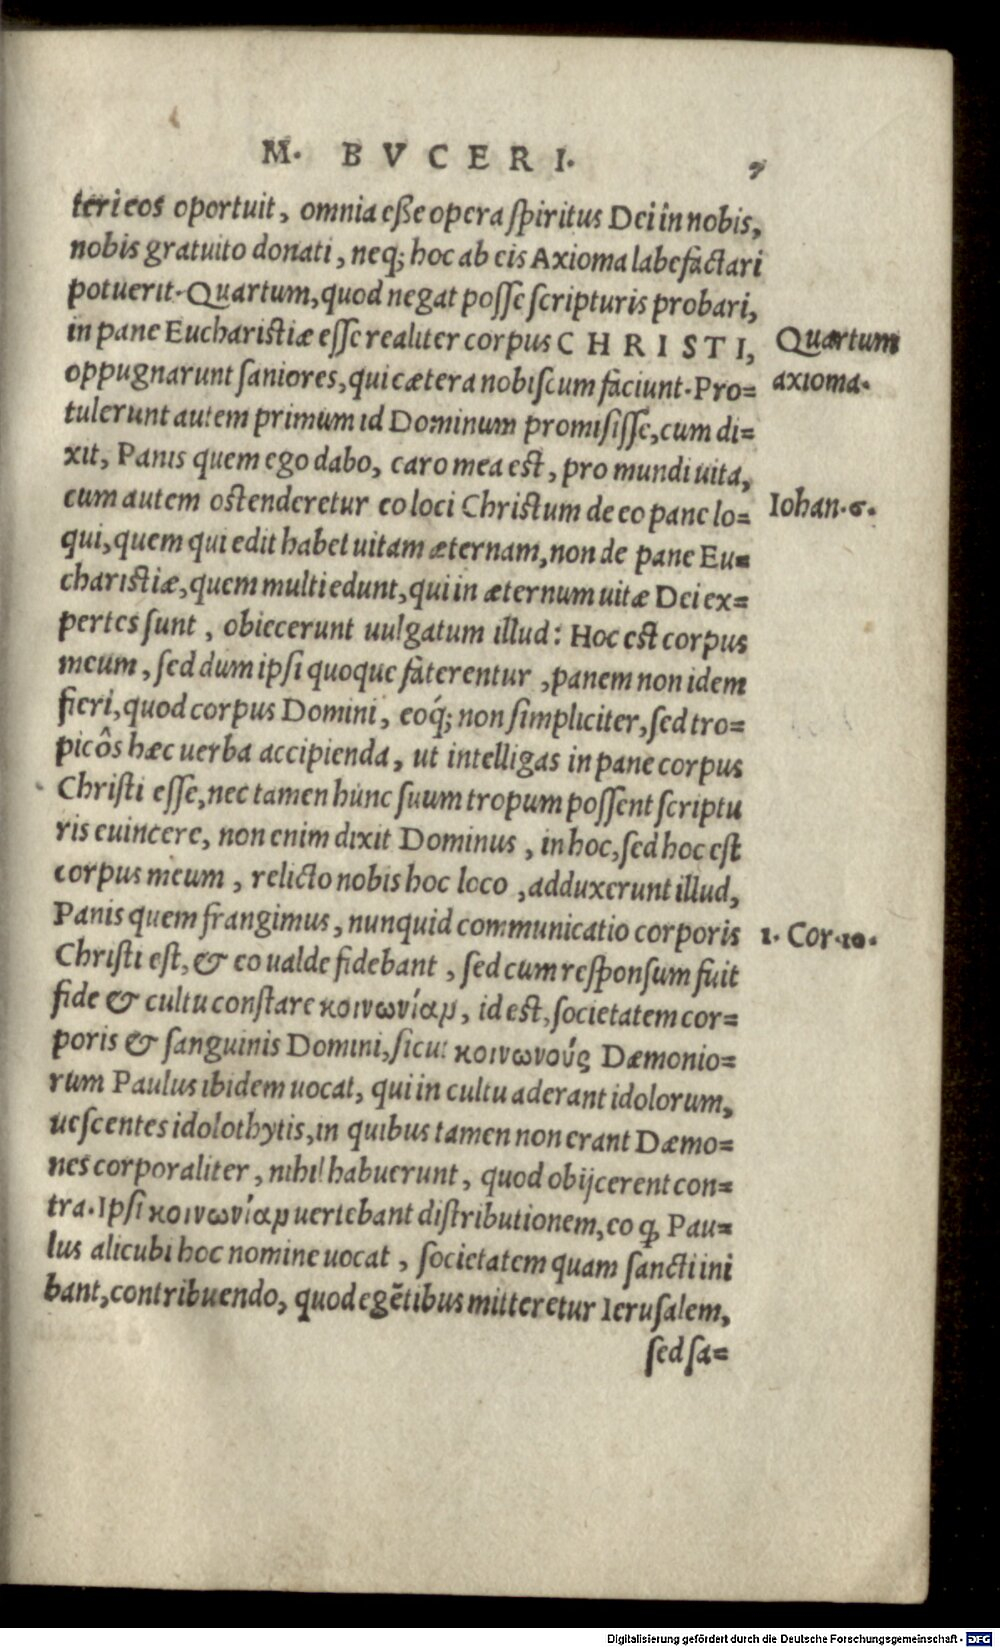 M. BVCERI. 7
tericos oportuit, omnia eße opera spiritus Dei in nobis,
nobis gratuito donati, neq; hoc ab eis Axioma labefactari
potuerit. Quartum, quod negat posse scripturis probari,
in pane Eucharistiæ esse realiter corpus CHRISTI,
Quartum
oppugnarunt saniores, qui cætera nobiscum faciunt. Pro=
axioma.
tulerunt autem primum id Dominum promisisse, cum di=
xit, Panis quem ego dabo, caro mea est, pro mundi uita,
cum autem ostenderetur eo loci Christum de eo pane lo=
Iohan. 6.
qui, quem qui edit habet uitam æternam, non de pane Eu=
charistiæ, quem multi edunt, qui in æternum uitæ Dei ex=
pertes sunt, obiecerunt uulgatum illud: Hoc est corpus
meum, sed dum ipsi quoque faterentur, panem non idem
fieri, quod corpus Domini, eoq́; non simpliciter, sed tro=
picôs hæc uerba accipienda, ut intelligas in pane corpus
Christi esse, nec tamen hunc suum tropum possent scriptu
ris euincere, non enim dixit Dominus, in hoc, sed hoc est
corpus meum, relicto nobis hoc loco, adduxerunt illud,
Panis quem frangimus, nunquid communicatio corporis
1. Cor. 10.
Christi est, & eo ualde fidebant, sed cum responsum fuit
fide & cultu constare κοινωνίαν, id est, societatem cor=
poris & sanguinis Domini, sicut κοινωνούς Dæmonio=
rum Paulus ibidem uocat, qui in cultu aderant idolorum,
uescentes idolothytis, in quibus tamen non erant Dæmo=
nes corporaliter, nihil habuerunt, quod obijcerent con=
tra. Ipsi κοινωνίαν uertebant distributionem, eo ꝙ Pau=
lus alicubi hoc nomine uocat, societatem quam sancti ini
bant, contribuendo, quod egẽtibus mitteretur Ierusalem,
sed sa=
Digitalisierung gefördert durch die Deutsche Forschungsgemeinschaft - DFG